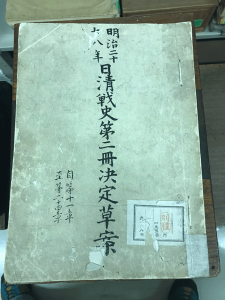 明治二十
七八年
日清戦史第二冊決定草案
自第十一章
至第二十四章